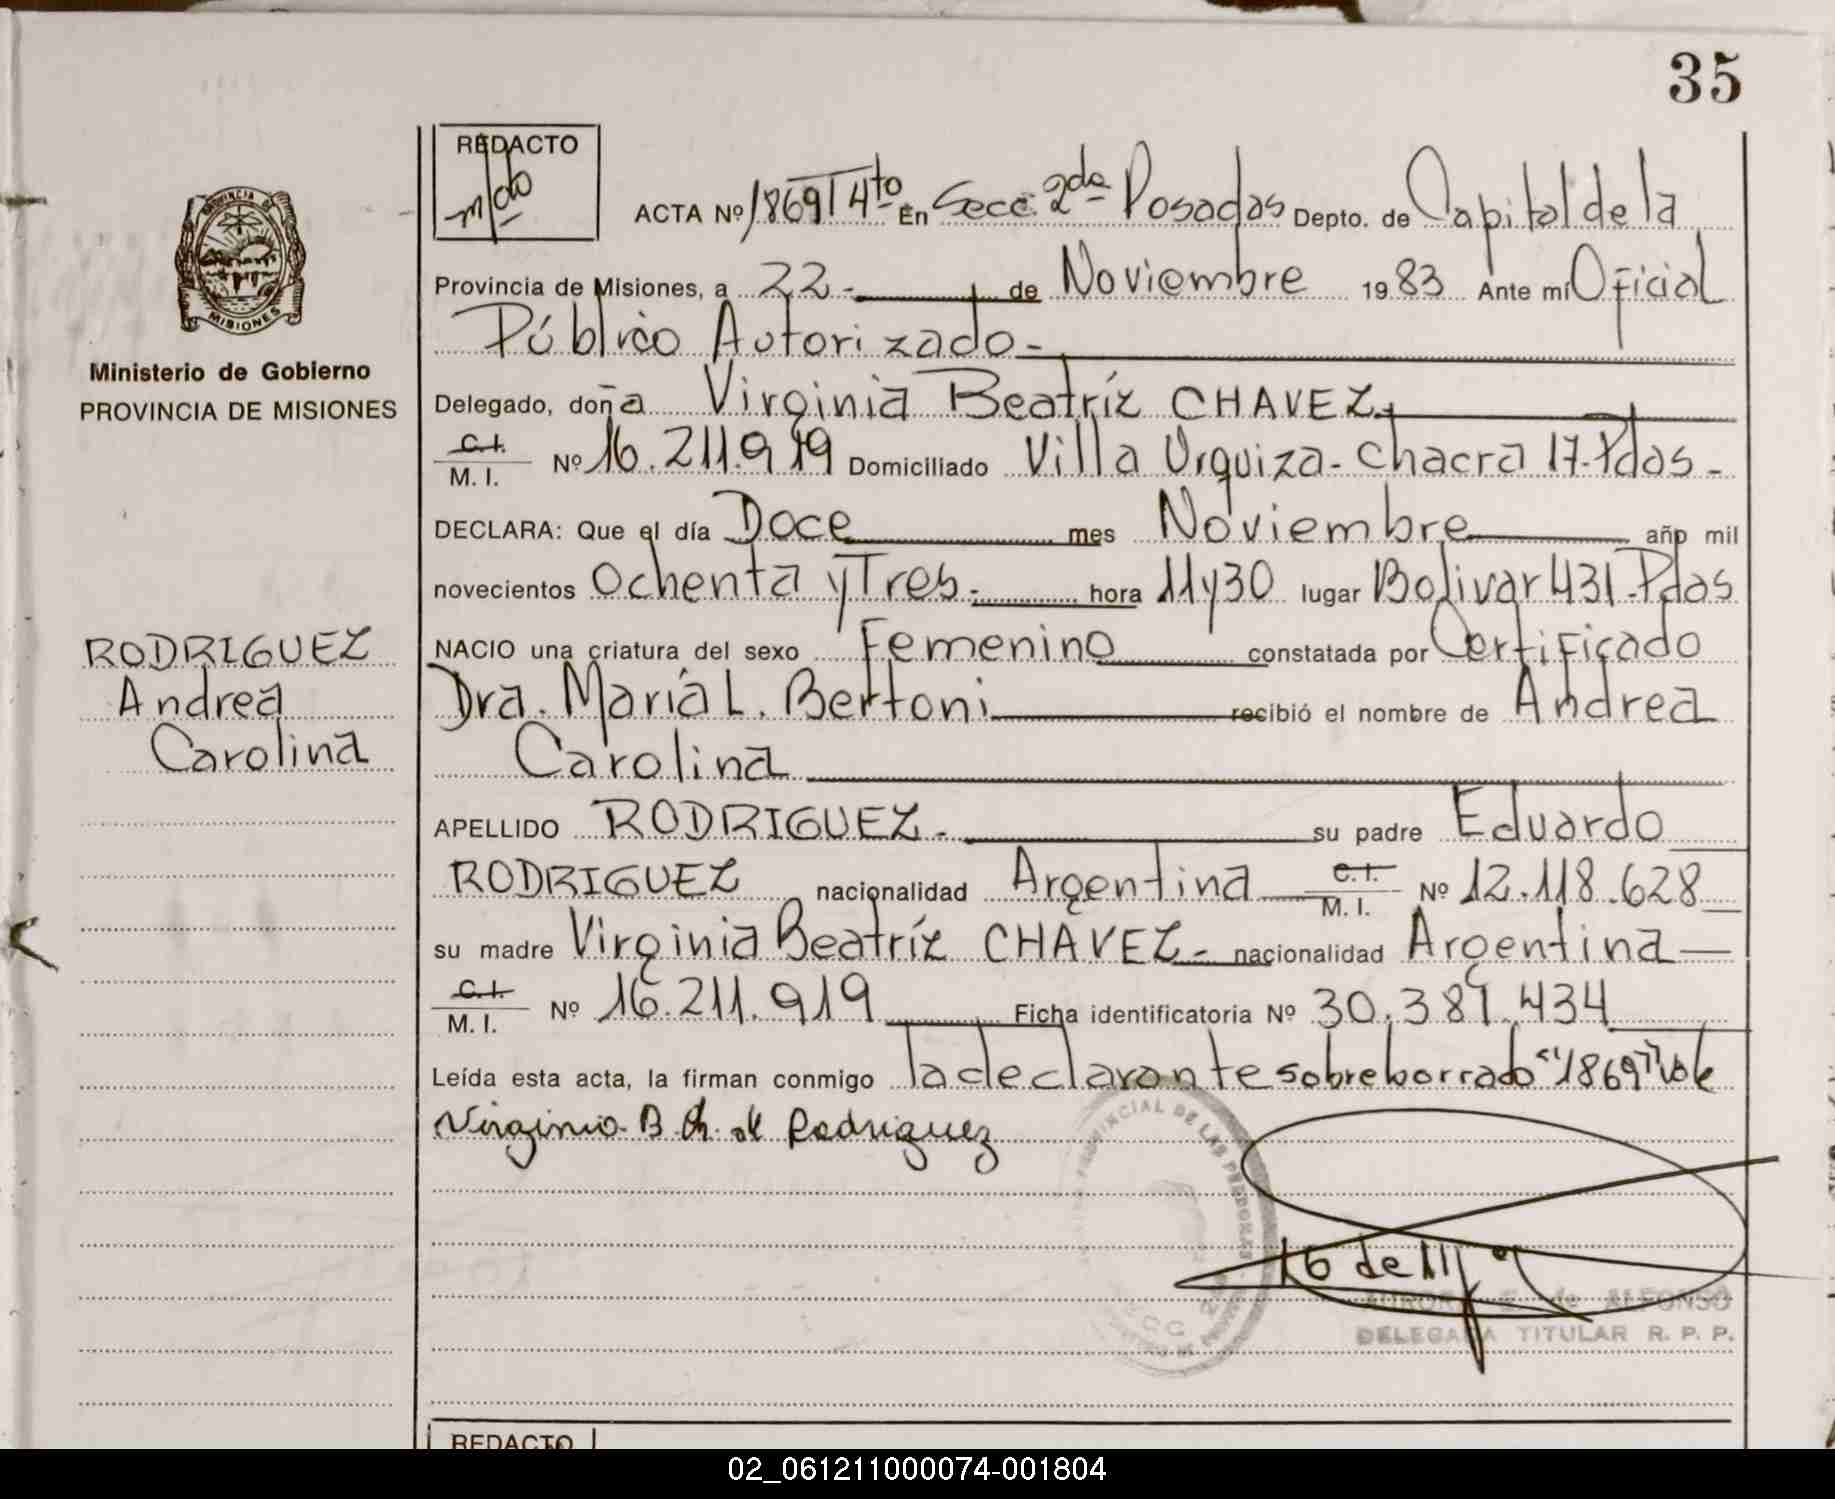 35
REDACTO
ACTA Nº 1869 T 4to En Secc. 2da Posadas Depto. de Capital de la
Provincia de Misiones, a 22.- de Noviembre 1983 Ante mí Oficial
Público Autorizado.-
PROVINCIA DE
MISIONES
Ministerio de Gobierno
PROVINCIA DE MISIONES
Delegado, doña Virginia Beatríz CHAVEZ.-
C.I.
M. I. Nº 16.211.919 Domiciliado Villa Urquiza - chacra 17-Pdas-
DECLARA: Que el día Doce mes Noviembre año mil
novecientos Ochenta y Tres.- hora 11y30 lugar Bolivar 431-Pdas
NACIO una criatura del sexo Femenino constatada por Certificado
Dra. María L. Bertoni recibió el nombre de Andrea
Carolina
RODRIGUEZ
Andrea
Carolina
APELLIDO RODRIGUEZ.- su padre Eduardo
RODRIGUEZ nacionalidad Argentina C.I. M. I. Nº 12.118.628
su madre Virginia Beatríz CHAVEZ.- nacionalidad Argentina
C.I.
M. I. Nº 16.211.919 Ficha identificatoria Nº 30.389.434
Leída esta acta, la firman conmigo la declarante sobreborrado "1869" vale
Virginia B. Ch. de Rodriguez
PROVINCIAL DE LAS PERSONAS
E. de ALFONSO
DELEGADA TITULAR R. P. P.
REDACTO
02_061211000074-001804